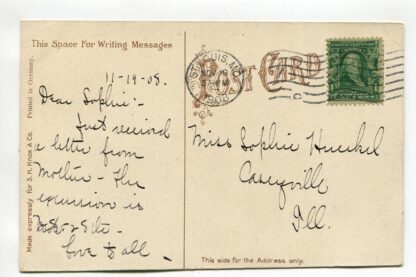 This Space For Writing Messages
POST CARD
11-19-08.
Dear Sophie:-
Just received
a letter from
Mother - The
excursion is
Love to all -
Miss Sophie Hueckel
Caseyville
Ill.
This side for the Address only.
Made expressly for S. H. Knox & Co. Printed in Germany.
ST. LOUIS, MO.
NOV 19
1908